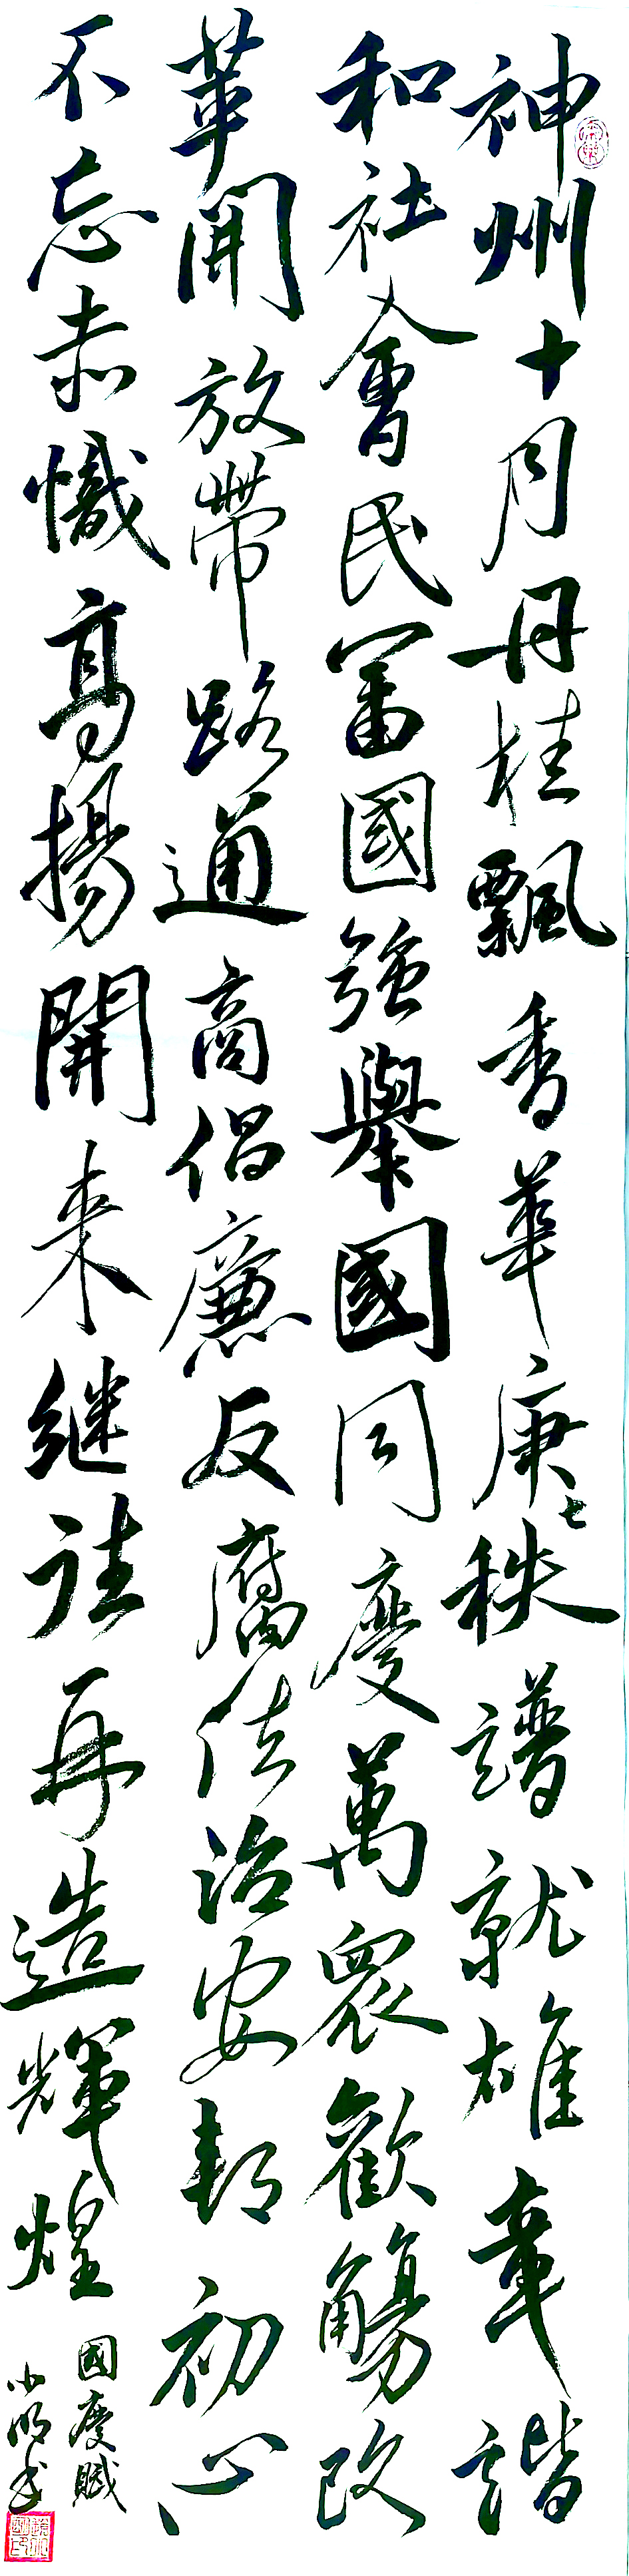 神州十月丹桂飄香華庚七秩譜就雄章諧
和社會民富國強舉國同慶萬眾歡觴改
革開放帶路通商倡廉反腐法治安邦初心
不忘赤幟高揚開來继往再造輝煌
國慶賦
小明书